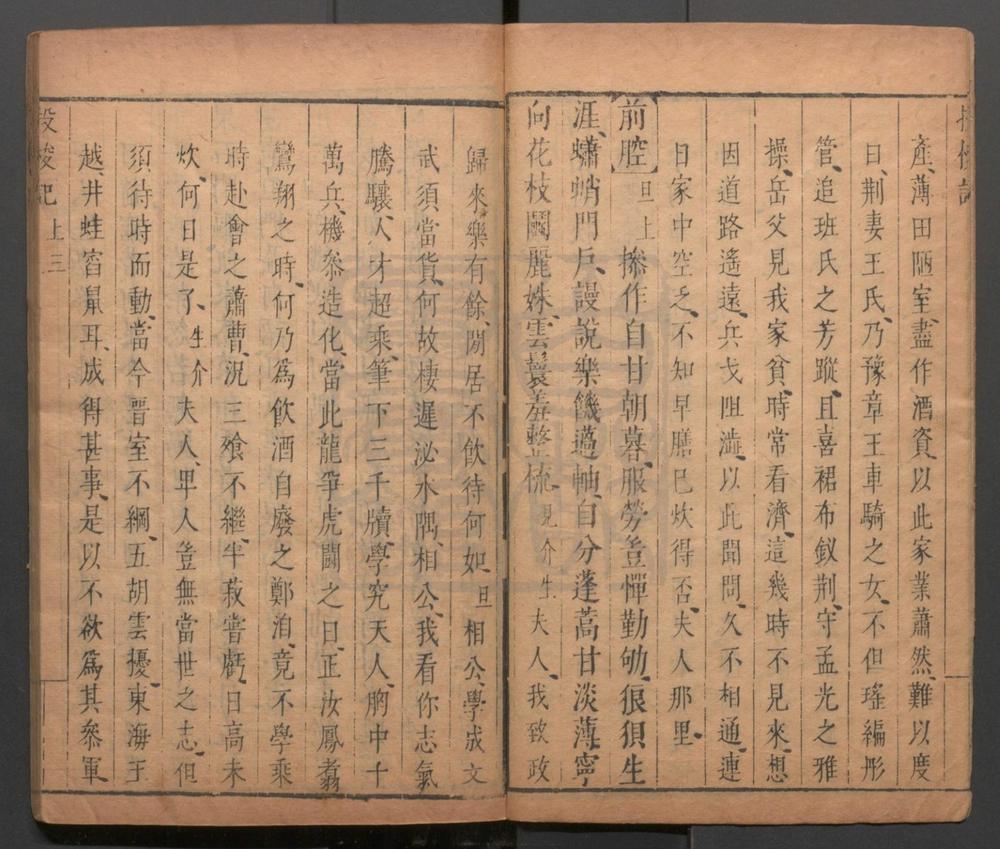 產、薄田陋室、盡作酒資、以此家業蕭然、難以度
日、荆妻王氏、乃豫章王車騎之女、不但瑤編彤
管、追班氏之芳蹤、且喜裙布釵荆、守孟光之雅
操、岳父見我家貧、時常看濟、這幾時不見來、想
因道路遙遠、兵戈阻滯、以此聞問、久不相通、連
日家中空乏、不知早膳已炊得否、夫人那里、
前腔 旦上 操作自甘朝暮、服勞豈憚勤劬、狼狽生
涯、蠨蛸門戶、謾說樂饑薖軸、自分蓬蒿甘淡薄、寧
向花枝鬭麗姝、雲鬟羞整梳、見介生夫人、我致政
歸來樂有餘、閒居不飲待何如、旦相公、學成文
武、須當貨、何故棲遲泌水隅、相公、我看你志氣
騰驤、人才超乘、筆下三千牘、學究天人、胸中十
萬兵、機叅造化、當此龍爭虎鬪之日、正汝鳳翥
鸞翔之時、何乃爲飲酒自廢之鄭泊、竟不學乘
時赴會之蕭曹、況三飱不繼、半菽嘗虧、日高未
炊、何日是了、生介夫人、卑人豈無當世之志、但
須待時而動、當今晋室不綱、五胡雲擾、東海王
越、井蛙窅鼠耳、成得甚事、是以不欲爲其叅軍
投梭記 上 三